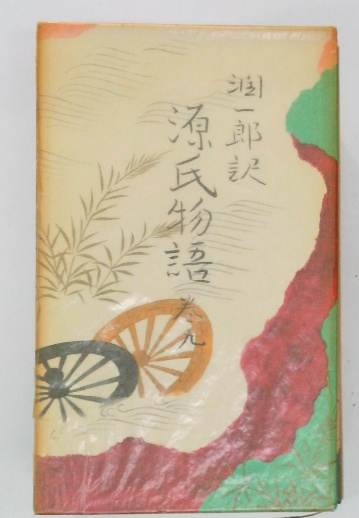 潤一郎訳
源氏物語
巻九